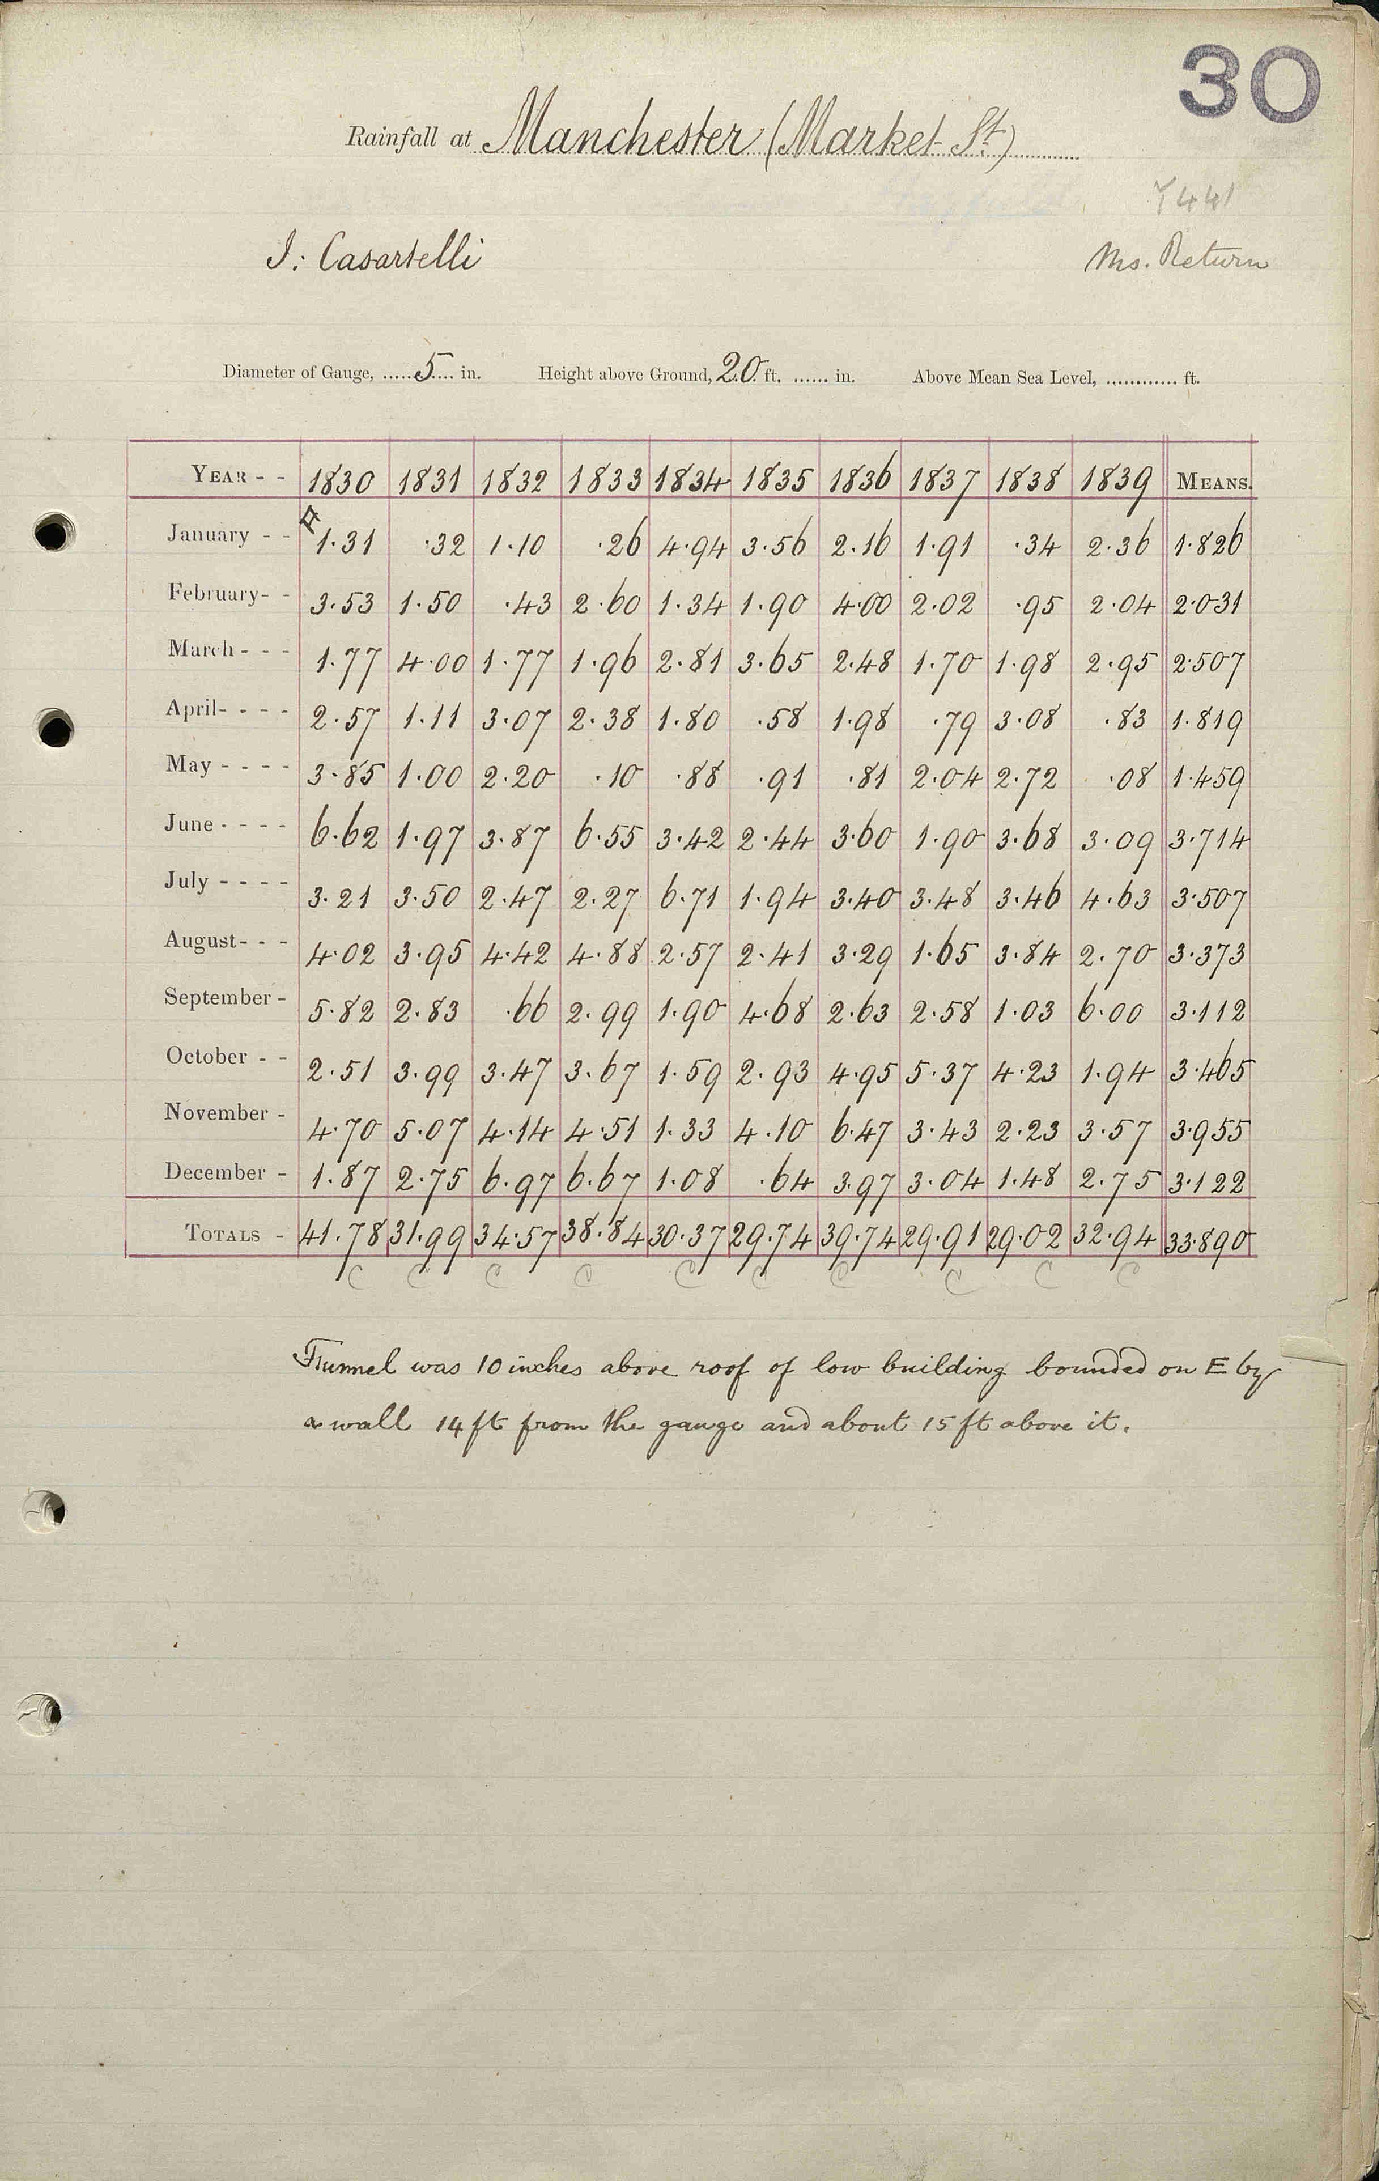 30
Rainfall at Manchester (Market St)
Y441
J: Casartelli
Ms. Return
Diameter of Gauge, ......5.... in. Height above Ground, 20 ft. ...... in. Above Mean Sea Level, ............ ft.
YEAR - - 1830 1831 1832 1833 1834 1835 1836 1837 1838 1839 MEANS.
January - - 1.31 .32 1.10 .26 4.94 3.56 2.16 1.91 .34 2.36 1.826
February- - 3.53 1.50 .43 2.60 1.34 1.90 4.00 2.02 .95 2.04 2.031
March - - - 1.77 4.00 1.77 1.96 2.81 3.65 2.48 1.70 1.98 2.95 2.507
April- - - - 2.57 1.11 3.07 2.38 1.80 .58 1.98 .79 3.08 .83 1.819
May - - - - 3.85 1.00 2.20 .10 .88 .91 .81 2.04 2.72 .08 1.459
June - - - - 6.62 1.97 3.87 6.55 3.42 2.44 3.60 1.90 3.68 3.09 3.714
July - - - - 3.21 3.50 2.47 2.27 6.71 1.94 3.40 3.48 3.46 4.63 3.507
August- - - 4.02 3.95 4.42 4.88 2.57 2.41 3.29 1.65 3.84 2.70 3.373
September - 5.82 2.83 .66 2.99 1.90 4.68 2.63 2.58 1.03 6.00 3.112
October - - 2.51 3.99 3.47 3.67 1.59 2.93 4.95 5.37 4.23 1.94 3.465
November - 4.70 5.07 4.14 4.51 1.33 4.10 6.47 3.43 2.23 3.57 3.955
December - 1.87 2.75 6.97 6.67 1.08 .64 3.97 3.04 1.48 2.75 3.122
TOTALS - 41.78 31.99 34.57 38.84 30.37 29.74 39.74 29.91 29.02 32.94 33.890
C C C C C C C C C C
Funnel was 10 inches above roof of low building bounded on E by
a wall 14 ft from the gauge and about 15 ft above it.